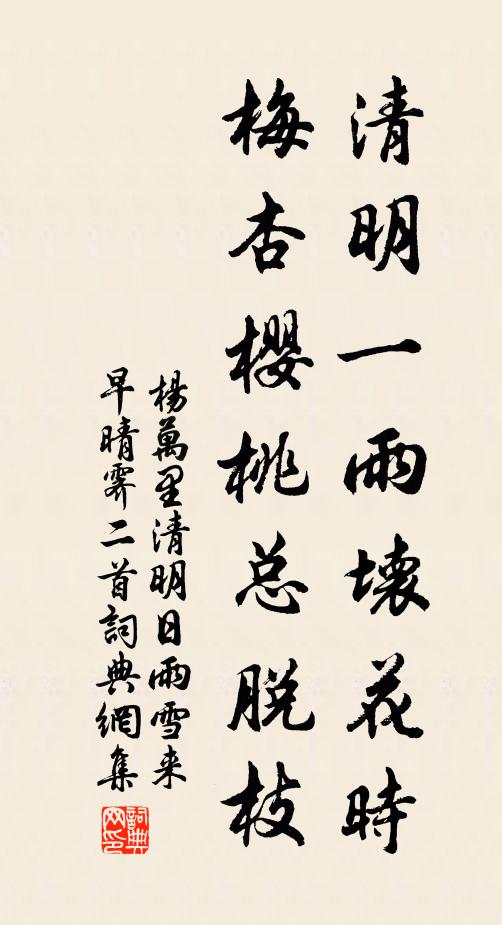 清明一雨壞花時
梅杏櫻桃总脱枝
楊萬里清明日雨雪来
早晴霽二首詞典網集
詞典
网印